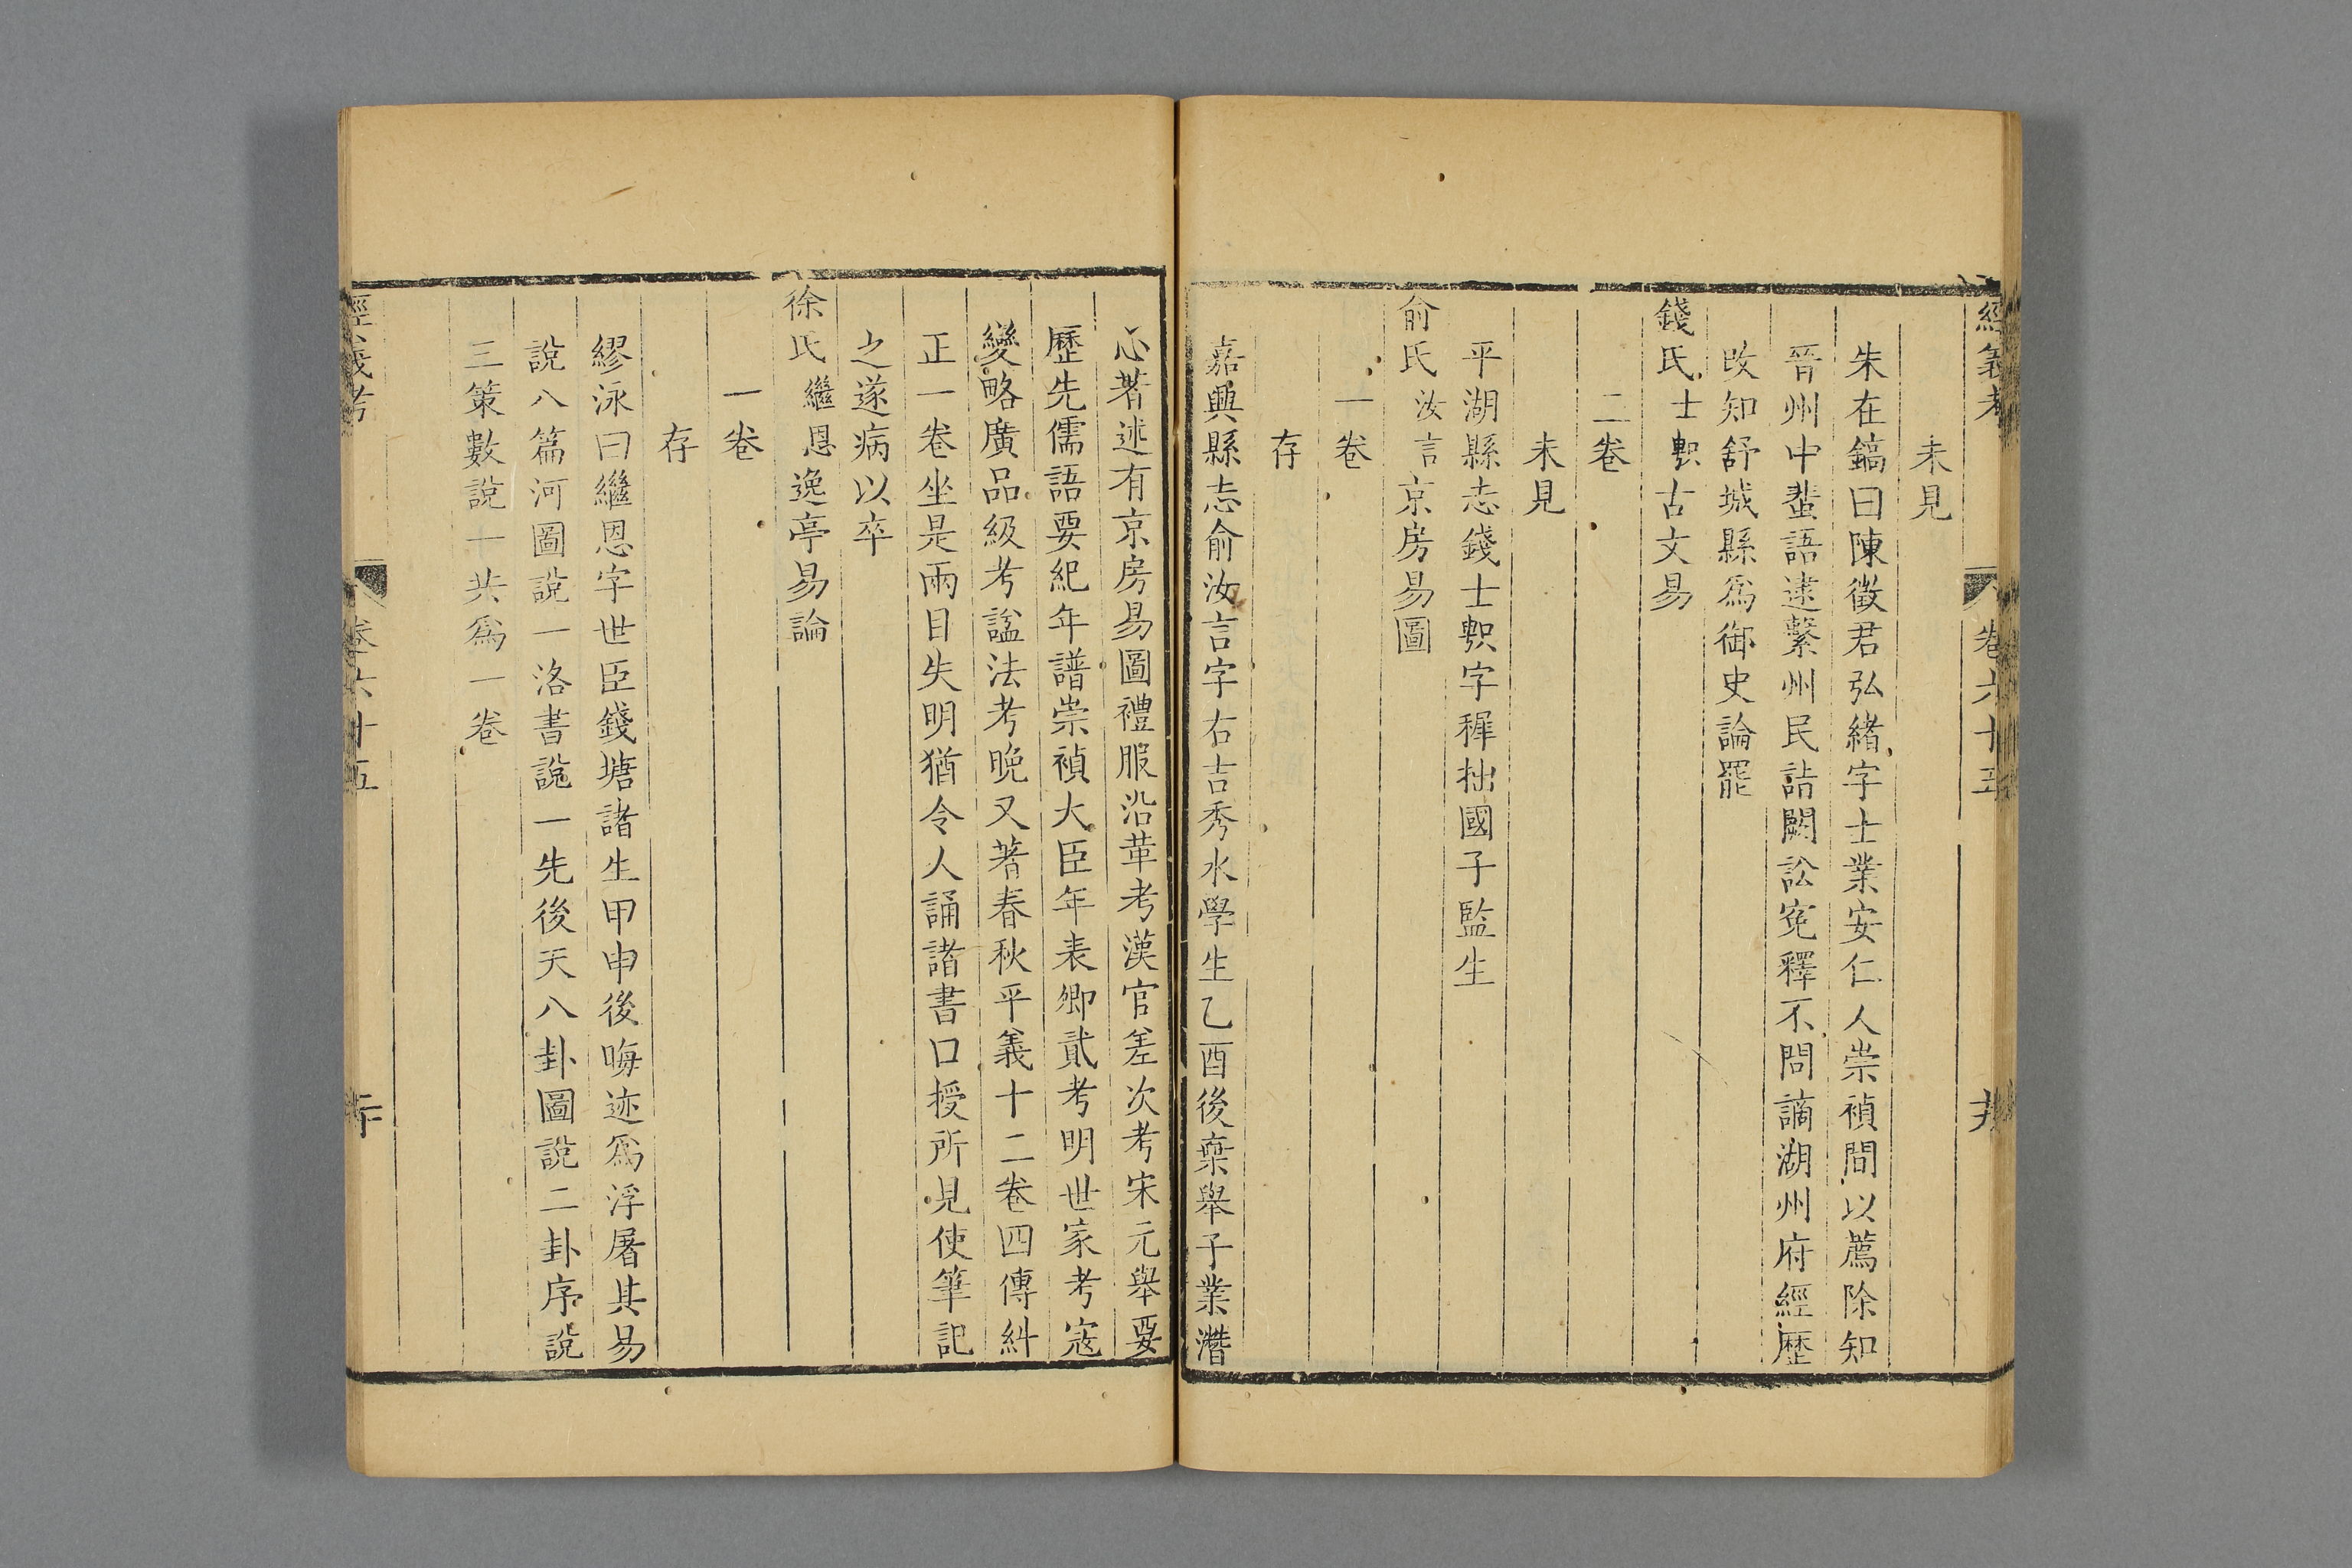 經義考
卷六十五
未見
朱在鎬曰陳徵君弘緒字士業安仁人崇禎間以薦除知
晉州中蜚語逮繫州民詣闕訟寃釋不問謫湖州府經歷
改知舒城縣爲御史論罷
錢氏士軹古文易
二卷
未見
平湖縣志錢士軹字稺拙國子監生
俞氏汝言京房易圖
一卷
存
嘉興縣志俞汝言字右吉秀水學生乙酉後棄舉子業潛
心著述有京房易圖禮服沿革考漢官差次考宋元舉要
歷先儒語要紀年譜崇禎大臣年表卿貳考明世家考寇
變略廣品級考諡法考晚又著春秋平義十二卷四傳糾
正一卷坐是兩目失明猶令人誦諸書口授所見使筆記
之遂病以卒
徐氏繼恩逸亭易論
一卷
存
繆泳曰繼恩字世臣錢塘諸生甲申後晦迹爲浮屠其易
說八篇河圖說一洛書說一先後天八卦圖說二卦序說
三策數說一共爲一卷
經義考
卷六十五